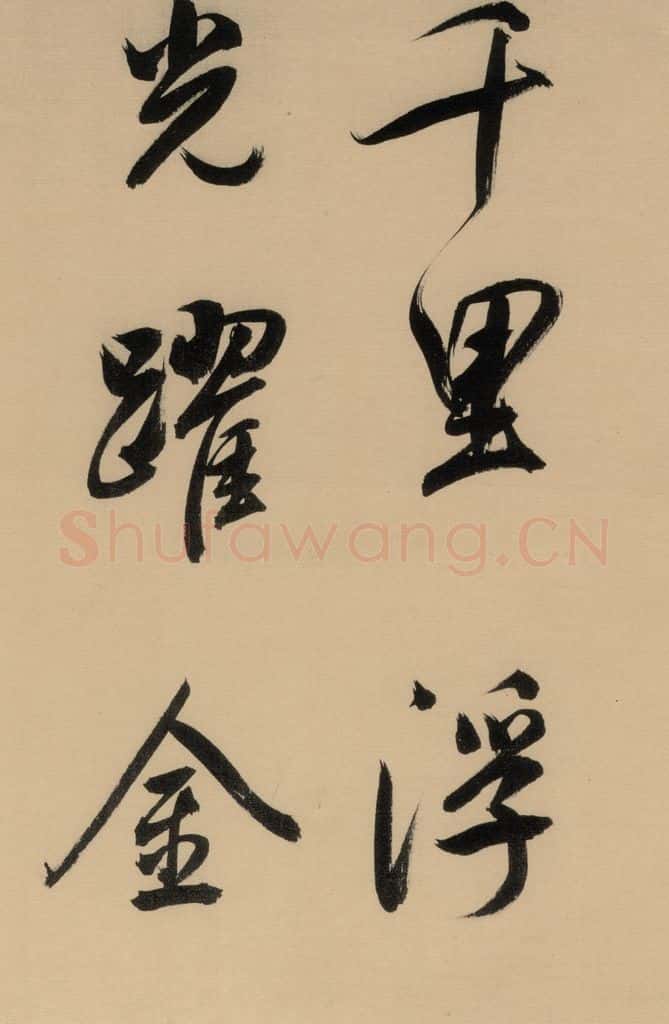 千里浮
光躍金
Shufawang.CN